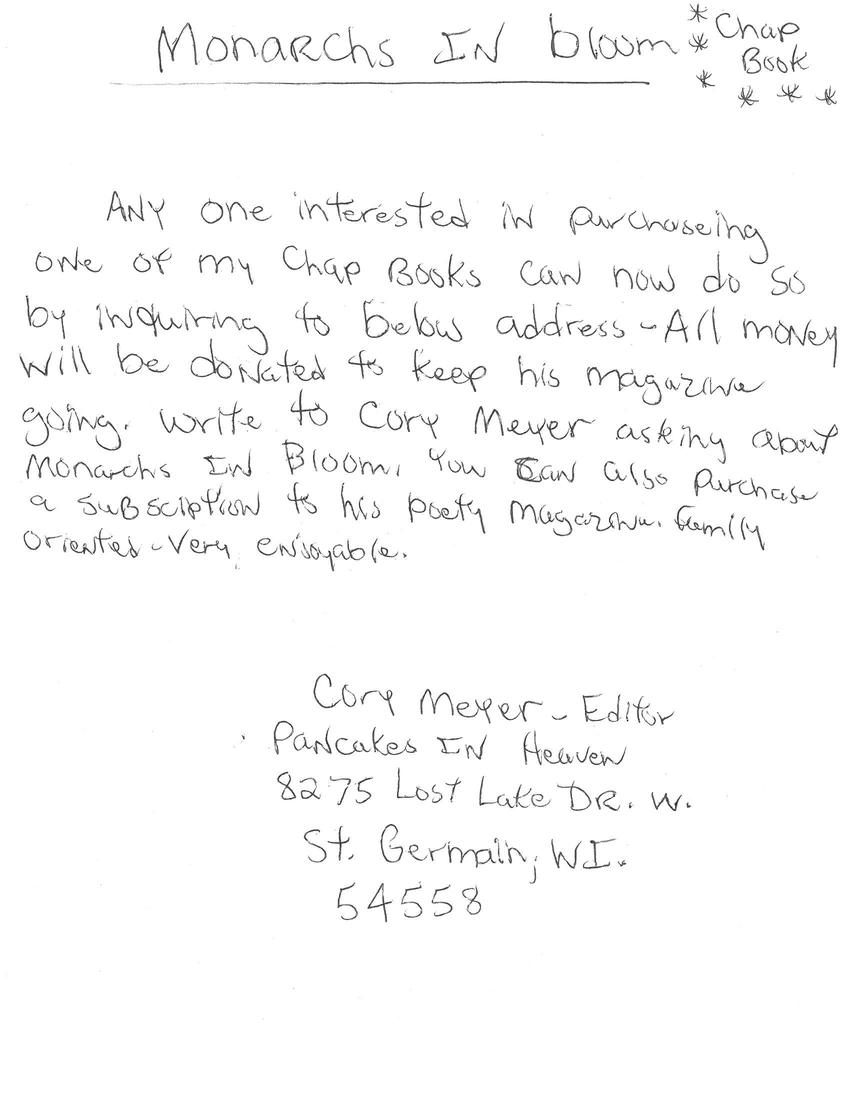 Monarchs IN bloom * Chap
* Book
* * * *
ANY one interested in purchaseing
one of my Chap Books can now do so
by inquiring to below address - All money
will be donated to keep his magazine
going. write to Cory Meyer asking about
Monarchs In Bloom. You Can also purchase
a subsciption to his poety magazine. Family
oriented - Very enjoyable.
Cory Meyer - Editor
Pancakes In Heaven
8275 Lost Lake DR. W.
St. Germain, WI.
54558